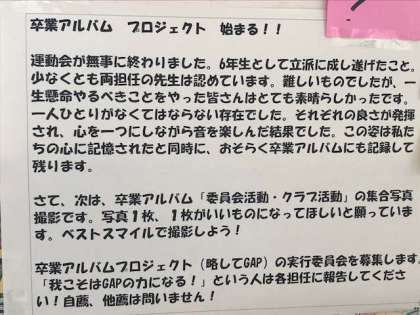 卒業アルバム プロジェクト 始まる！！
運動会が無事に終わりました。6年生として立派に成し遂げたこと。
少なくとも両担任の先生は認めています。難しいものでしたが、一
生懸命やるべきことをやった皆さんはとても素晴らしかったです。
一人ひとりがなくてはならない存在でした。それぞれの良さが発揮
され、心を一つにしながら音を楽しんだ結果でした。この姿は私た
ちの心に記憶されたと同時に、おそらく卒業アルバムにも記録して
残ります。
さて、次は、卒業アルバム「委員会活動・クラブ活動」の集合写真
撮影です。写真1枚、1枚がいいものになってほしいと願っていま
す。ベストスマイルで撮影しよう！
卒業アルバムプロジェクト（略してGAP）の実行委員会を募集します。
「我こそはGAPの力になる！」という人は各担任に報告してくださ
い！自薦、他薦は問いません！